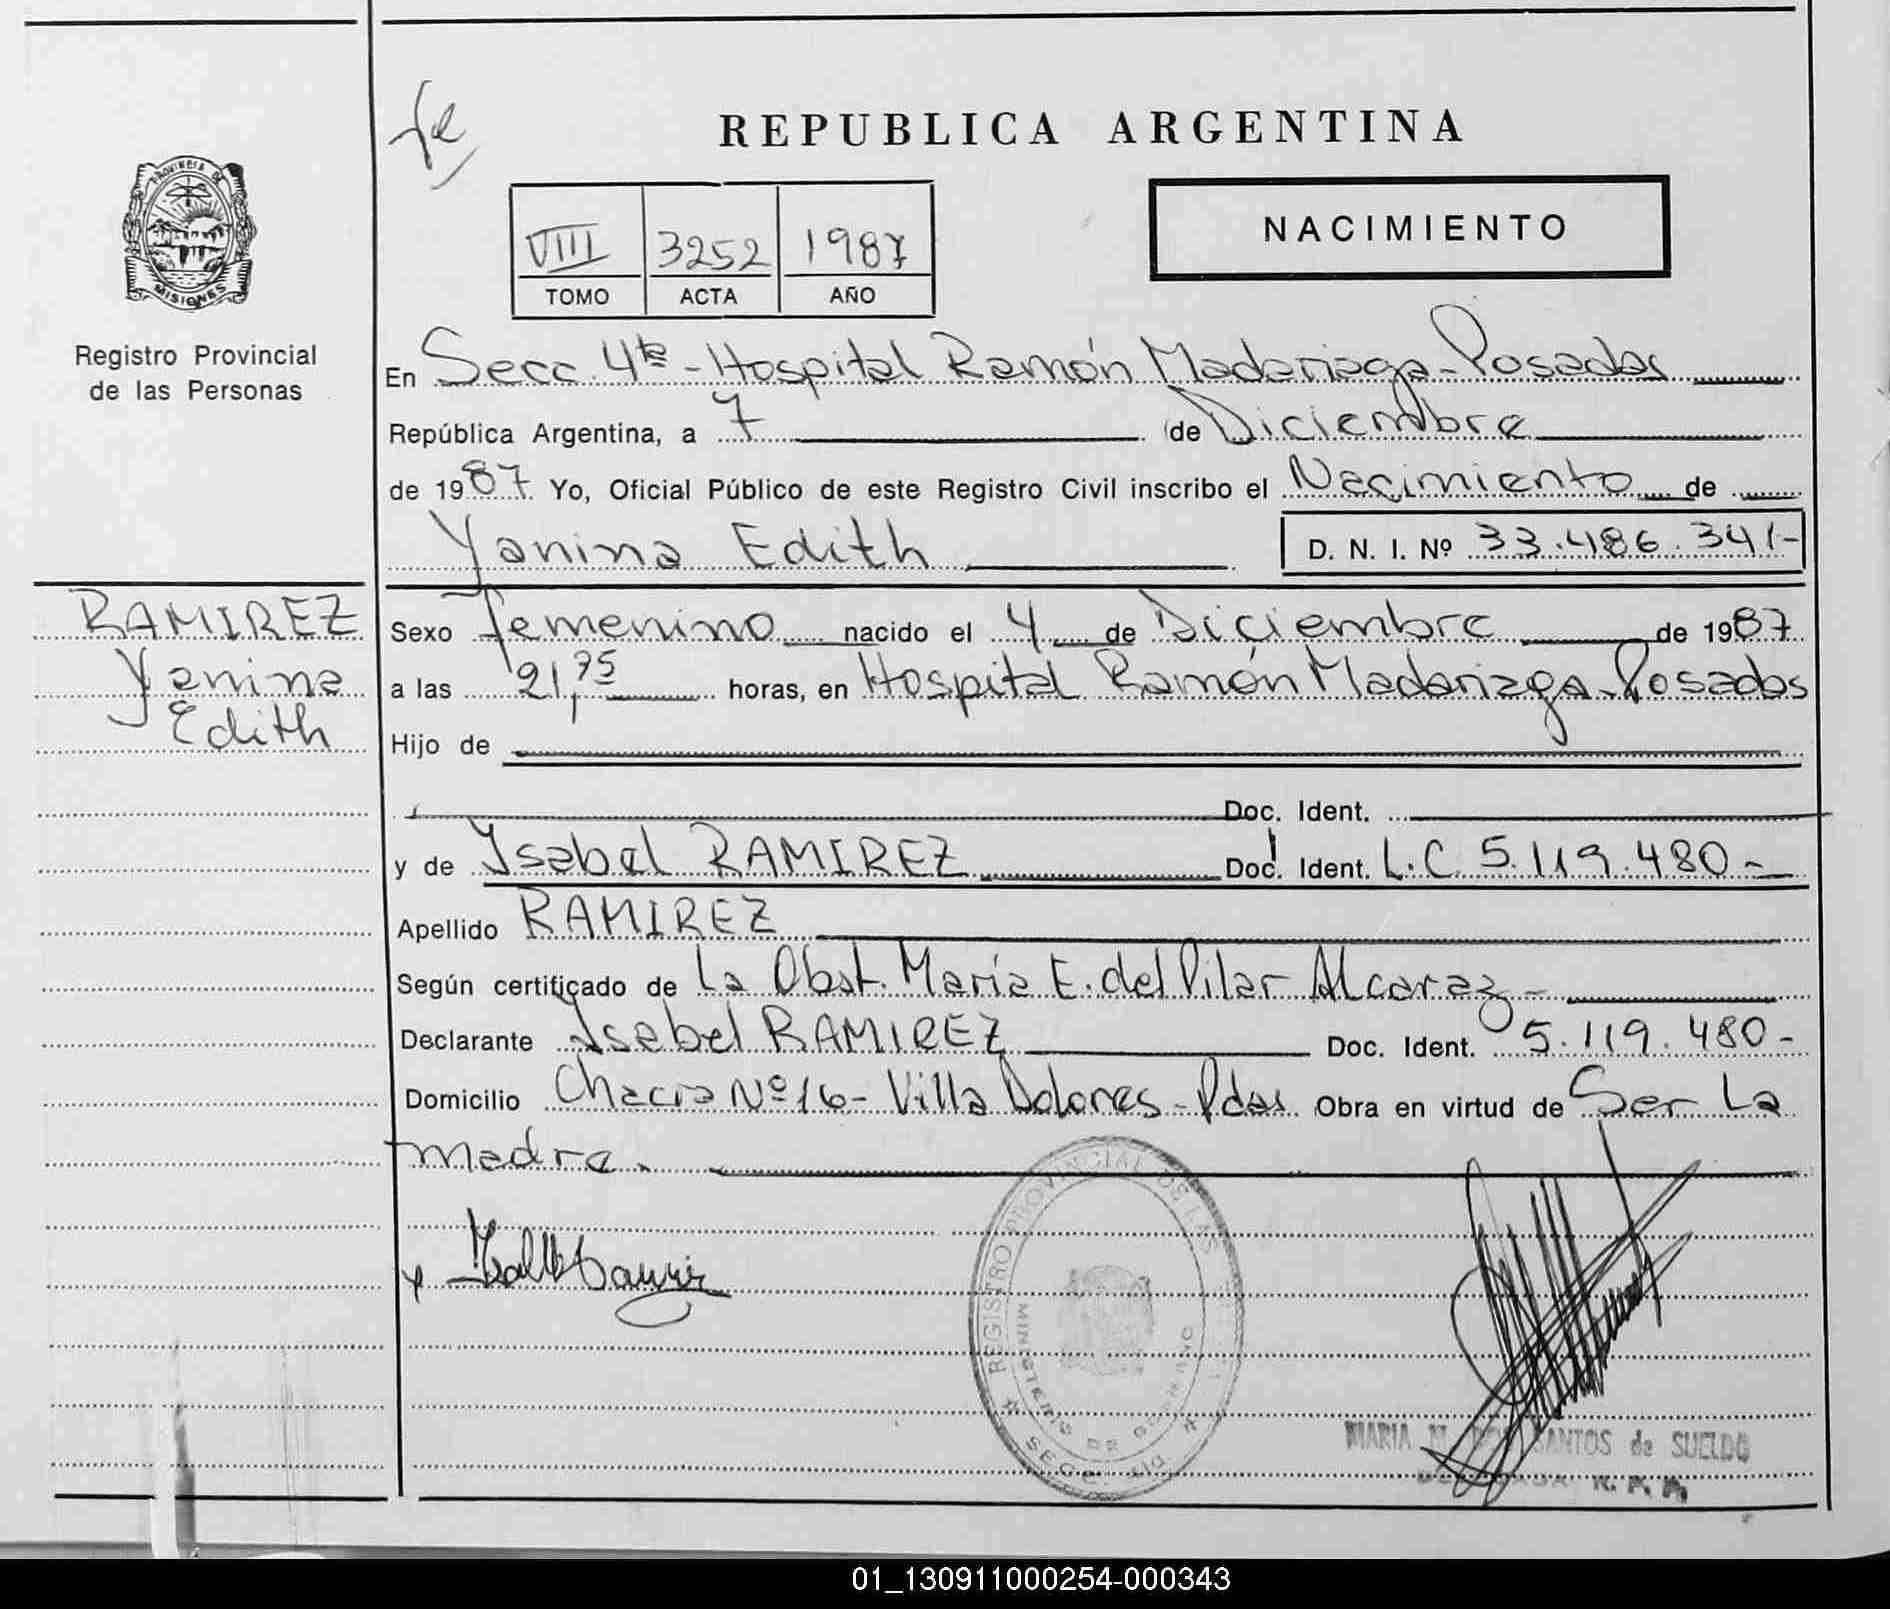 REPUBLICA ARGENTINA
NACIMIENTO
VIII 3252 1987
TOMO ACTA AÑO
PROVINCIA DE
MISIONES
Registro Provincial
de las Personas
En Secc. 4ta - Hospital Ramón Madariaga - Posadas
República Argentina, a 7 de Diciembre
de 1987 Yo, Oficial Público de este Registro Civil inscribo el Nacimiento de
Yanina Edith D. N. I. Nº 33.486.341-
RAMIREZ
Yanina
Edith
Sexo femenino nacido el 4 de Diciembre de 1987
a las 21,75 horas, en Hospital Ramón Madariaga - Posadas
Hijo de
Doc. Ident.
y de Isabel RAMIREZ Doc. Ident. L.C 5.119.480-
Apellido RAMIREZ
Según certificado de La Obst. María E. del Pilar Alcaraz -
Declarante Isabel RAMIREZ Doc. Ident. 5.119.480-
Domicilio Chacra Nº 16 - Villa Dolores - Pdas Obra en virtud de Ser La
madre.
REGISTRO PROVINCIAL DE LAS
MINISTERIO DE
MARIA SANTOS de SUELDO
R. P. P.
01_130911000254-000343